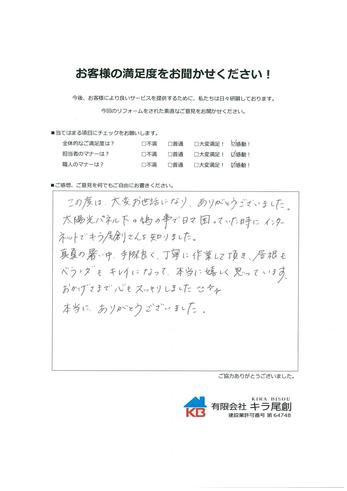 お客様の満足度をお聞かせください！
今後、お客様により良いサービスを提供するために、私たちは日々研鑽しております。
今回のリフォームをされた素直なご意見をお聞かせください。
■当てはまる項目にチェックをお願いします。
全体的なご満足度は？ □不満 □普通 □大変満足！ ☑感動！
担当者のマナーは？ □不満 □普通 □大変満足！ ☑感動！
職人のマナーは？ □不満 □普通 □大変満足！ ☑感動！
■ご感想、ご意見を何でもご自由にお書きください。
この度は、大変お世話になり、ありがとうございました。
太陽光パネル下の鳩の事で日々困っていた時にインター
ネットでキラ尾創さんを知りました。
真夏の暑い中、手際良く、丁寧に作業して頂き、屋根も
ベランダもキレイになって、本当に嬉しく思っています。
おかげさまで心もスッキリしました
本当に、ありがとうございました。
ご協力ありがとうございました。
KIRA BISOU
KB 有限会社 キラ尾創
建設業許可番号 第 64748